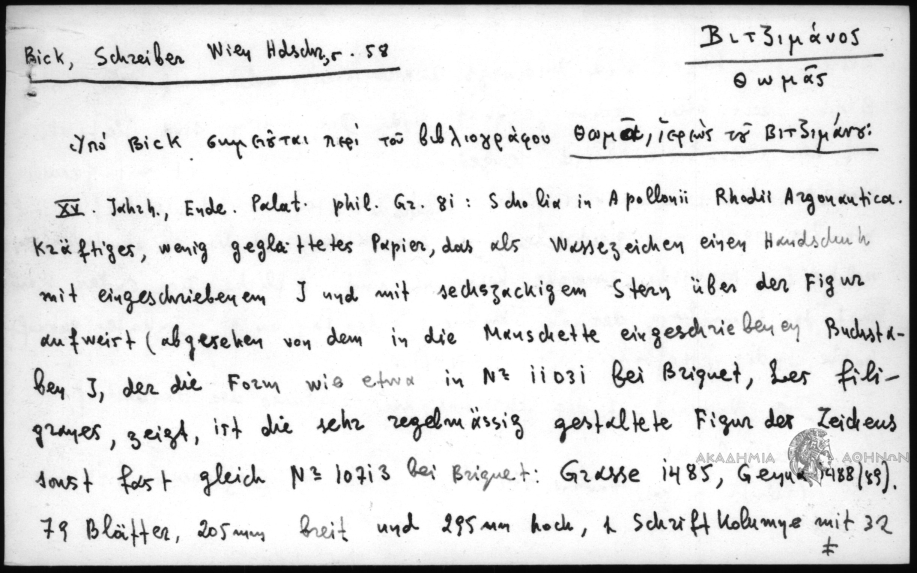 Bick, Schreiber Wien Hdschr, S. 58
Βιτζιμάνος
Θωμᾶς
Ὑπό Bick σημειοῦται περί τοῦ βιβλιογράφου Θωμᾶ, ἱερέως τοῦ Βιτζιμάνου:
XV. Jahrh., Ende. Palat. phil. Gr. 81: Scholia in Apollonii Rhodii Argonautica.
Kräftiges, wenig geglättetes Papier, das als Wassezeichen einen Handschuh
mit eingeschriebenem J und mit sechszackigem Stern über der Figur
aufweist (abgesehen von dem in die Manschette eingeschriebenen Buchsta-
ben J, der die Form wie etwa in Nr 11031 bei Briquet, Les fili-
granes, zeigt, ist die sehr regelmässig gestaltete Figur des Zeichens
sonst fast gleich Nr 10713 bei Briquet: Grasse 1485, Genua 1488/89).
79 Blätter, 205 mm breit und 295 mm hoch, 1 Schriftkolumne mit 32
ΑΚΑΔΗΜΙΑ ΑΘΗΝΩΝ